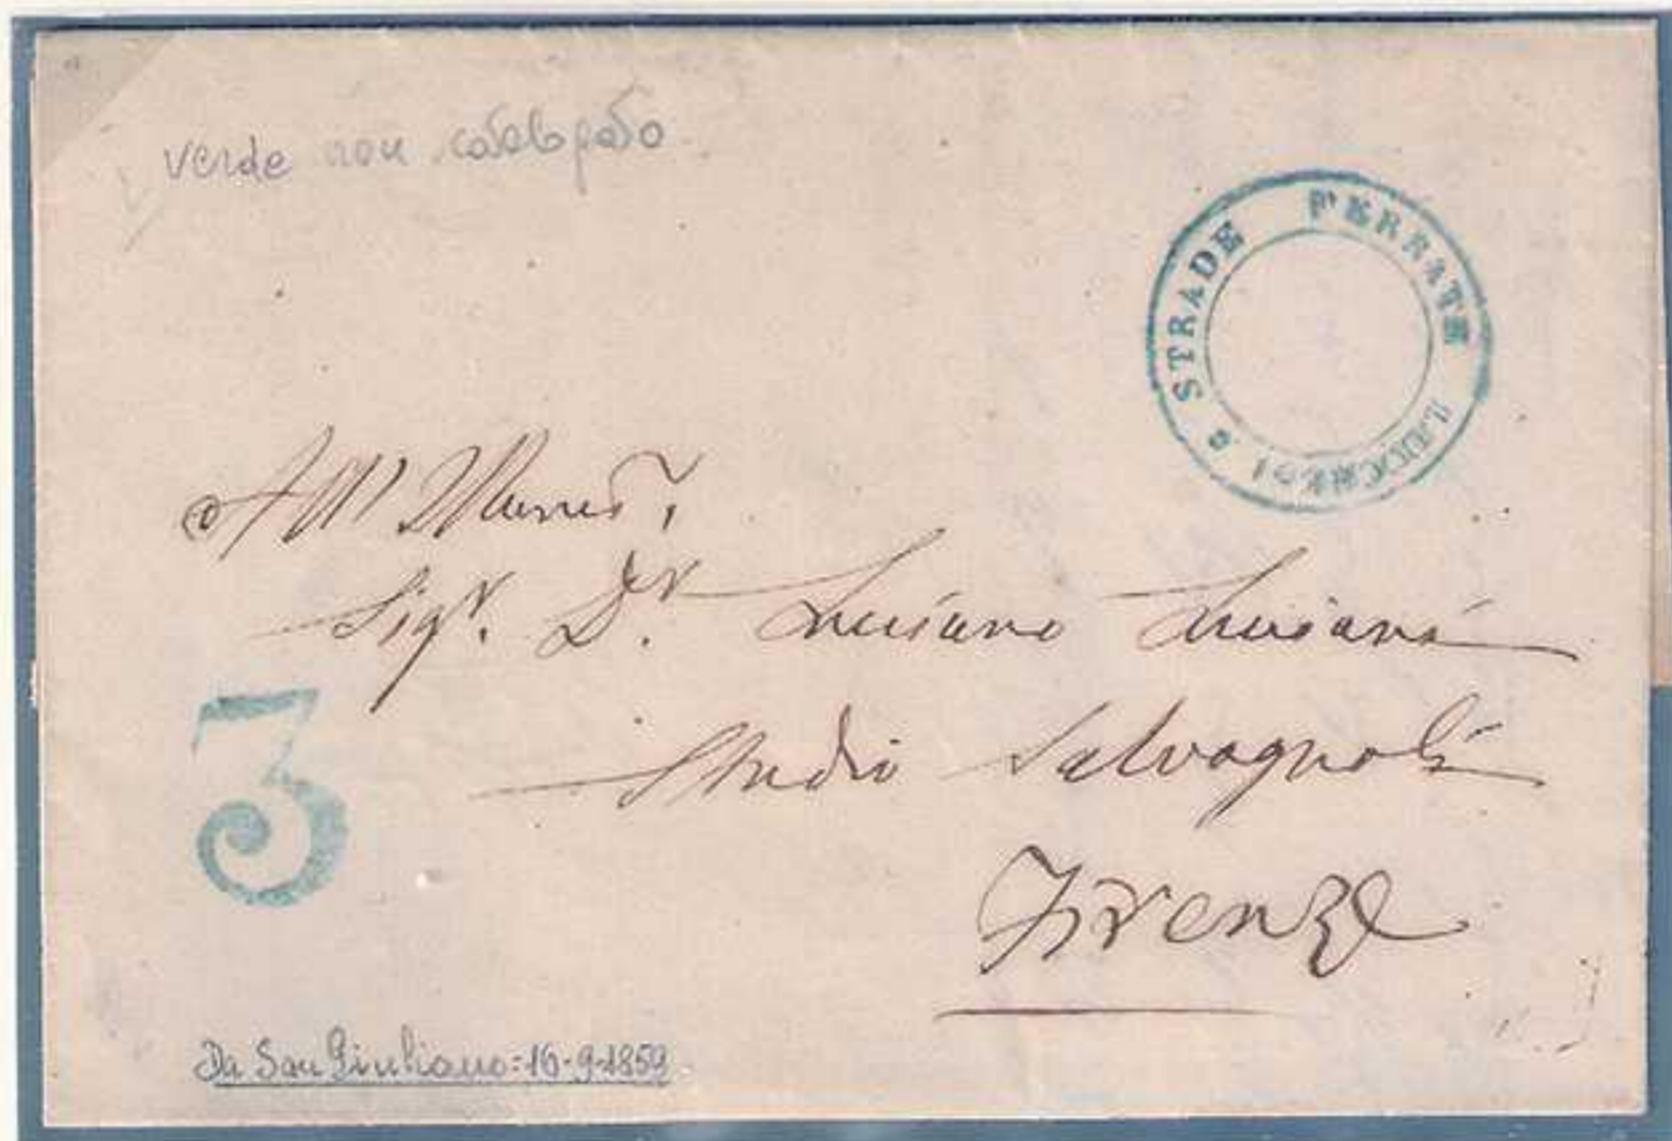 verde non catalogato
STRADE FERRATE LUCCHESI
All'
Sigr. Dr. Luciano Luciani
Studio Salvagnoli
3
Firenze
Da San Giuliano: 16-9-1859